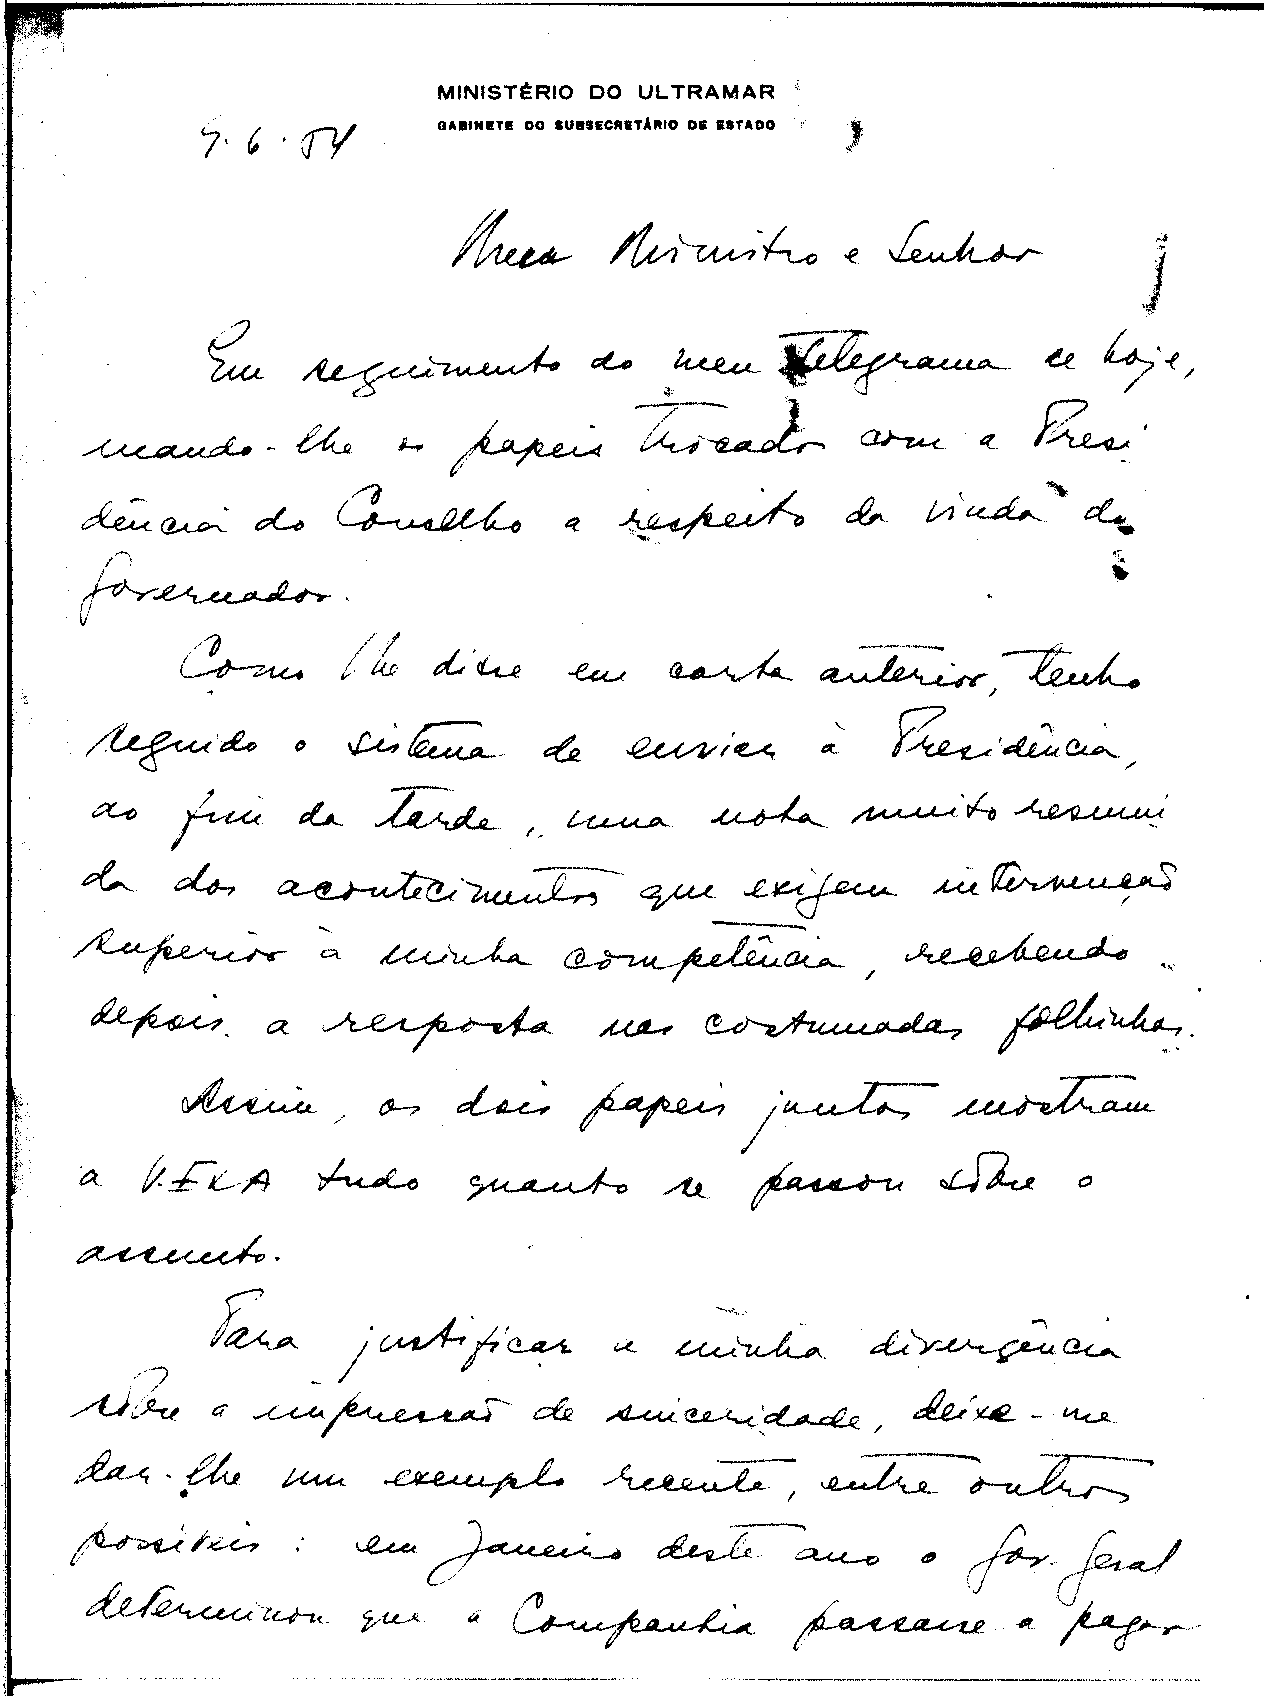 MINISTÉRIO DO ULTRAMAR
GABINETE DO SUBSECRETÁRIO DE ESTADO
9.6.54
Meu Ministro e Senhor
Em seguimento do meu telegrama de hoje,
mando-lhe os papeis trocados com a Presi
dência do Conselho a respeito da vinda do
Governador.
Como lhe disse em carta anterior, tenho
seguido o sistema de enviar à Presidência,
ao fim da tarde, uma nota muito resumi
da dos acontecimentos que exigem intervenção
superior à minha competência, recebendo
depois a resposta nas costumadas folhinhas.
Assim, os dois papeis juntos mostram
a V. EXA tudo quanto se passou sôbre o
assunto.
Para justificar a minha divergência
sôbre a impressão de sinceridade, deixe-me
dar-lhe um exemplo recente, entre outros
possíveis: em Janeiro deste ano o Gov. Geral
determinou que a Companhia passasse a pagar